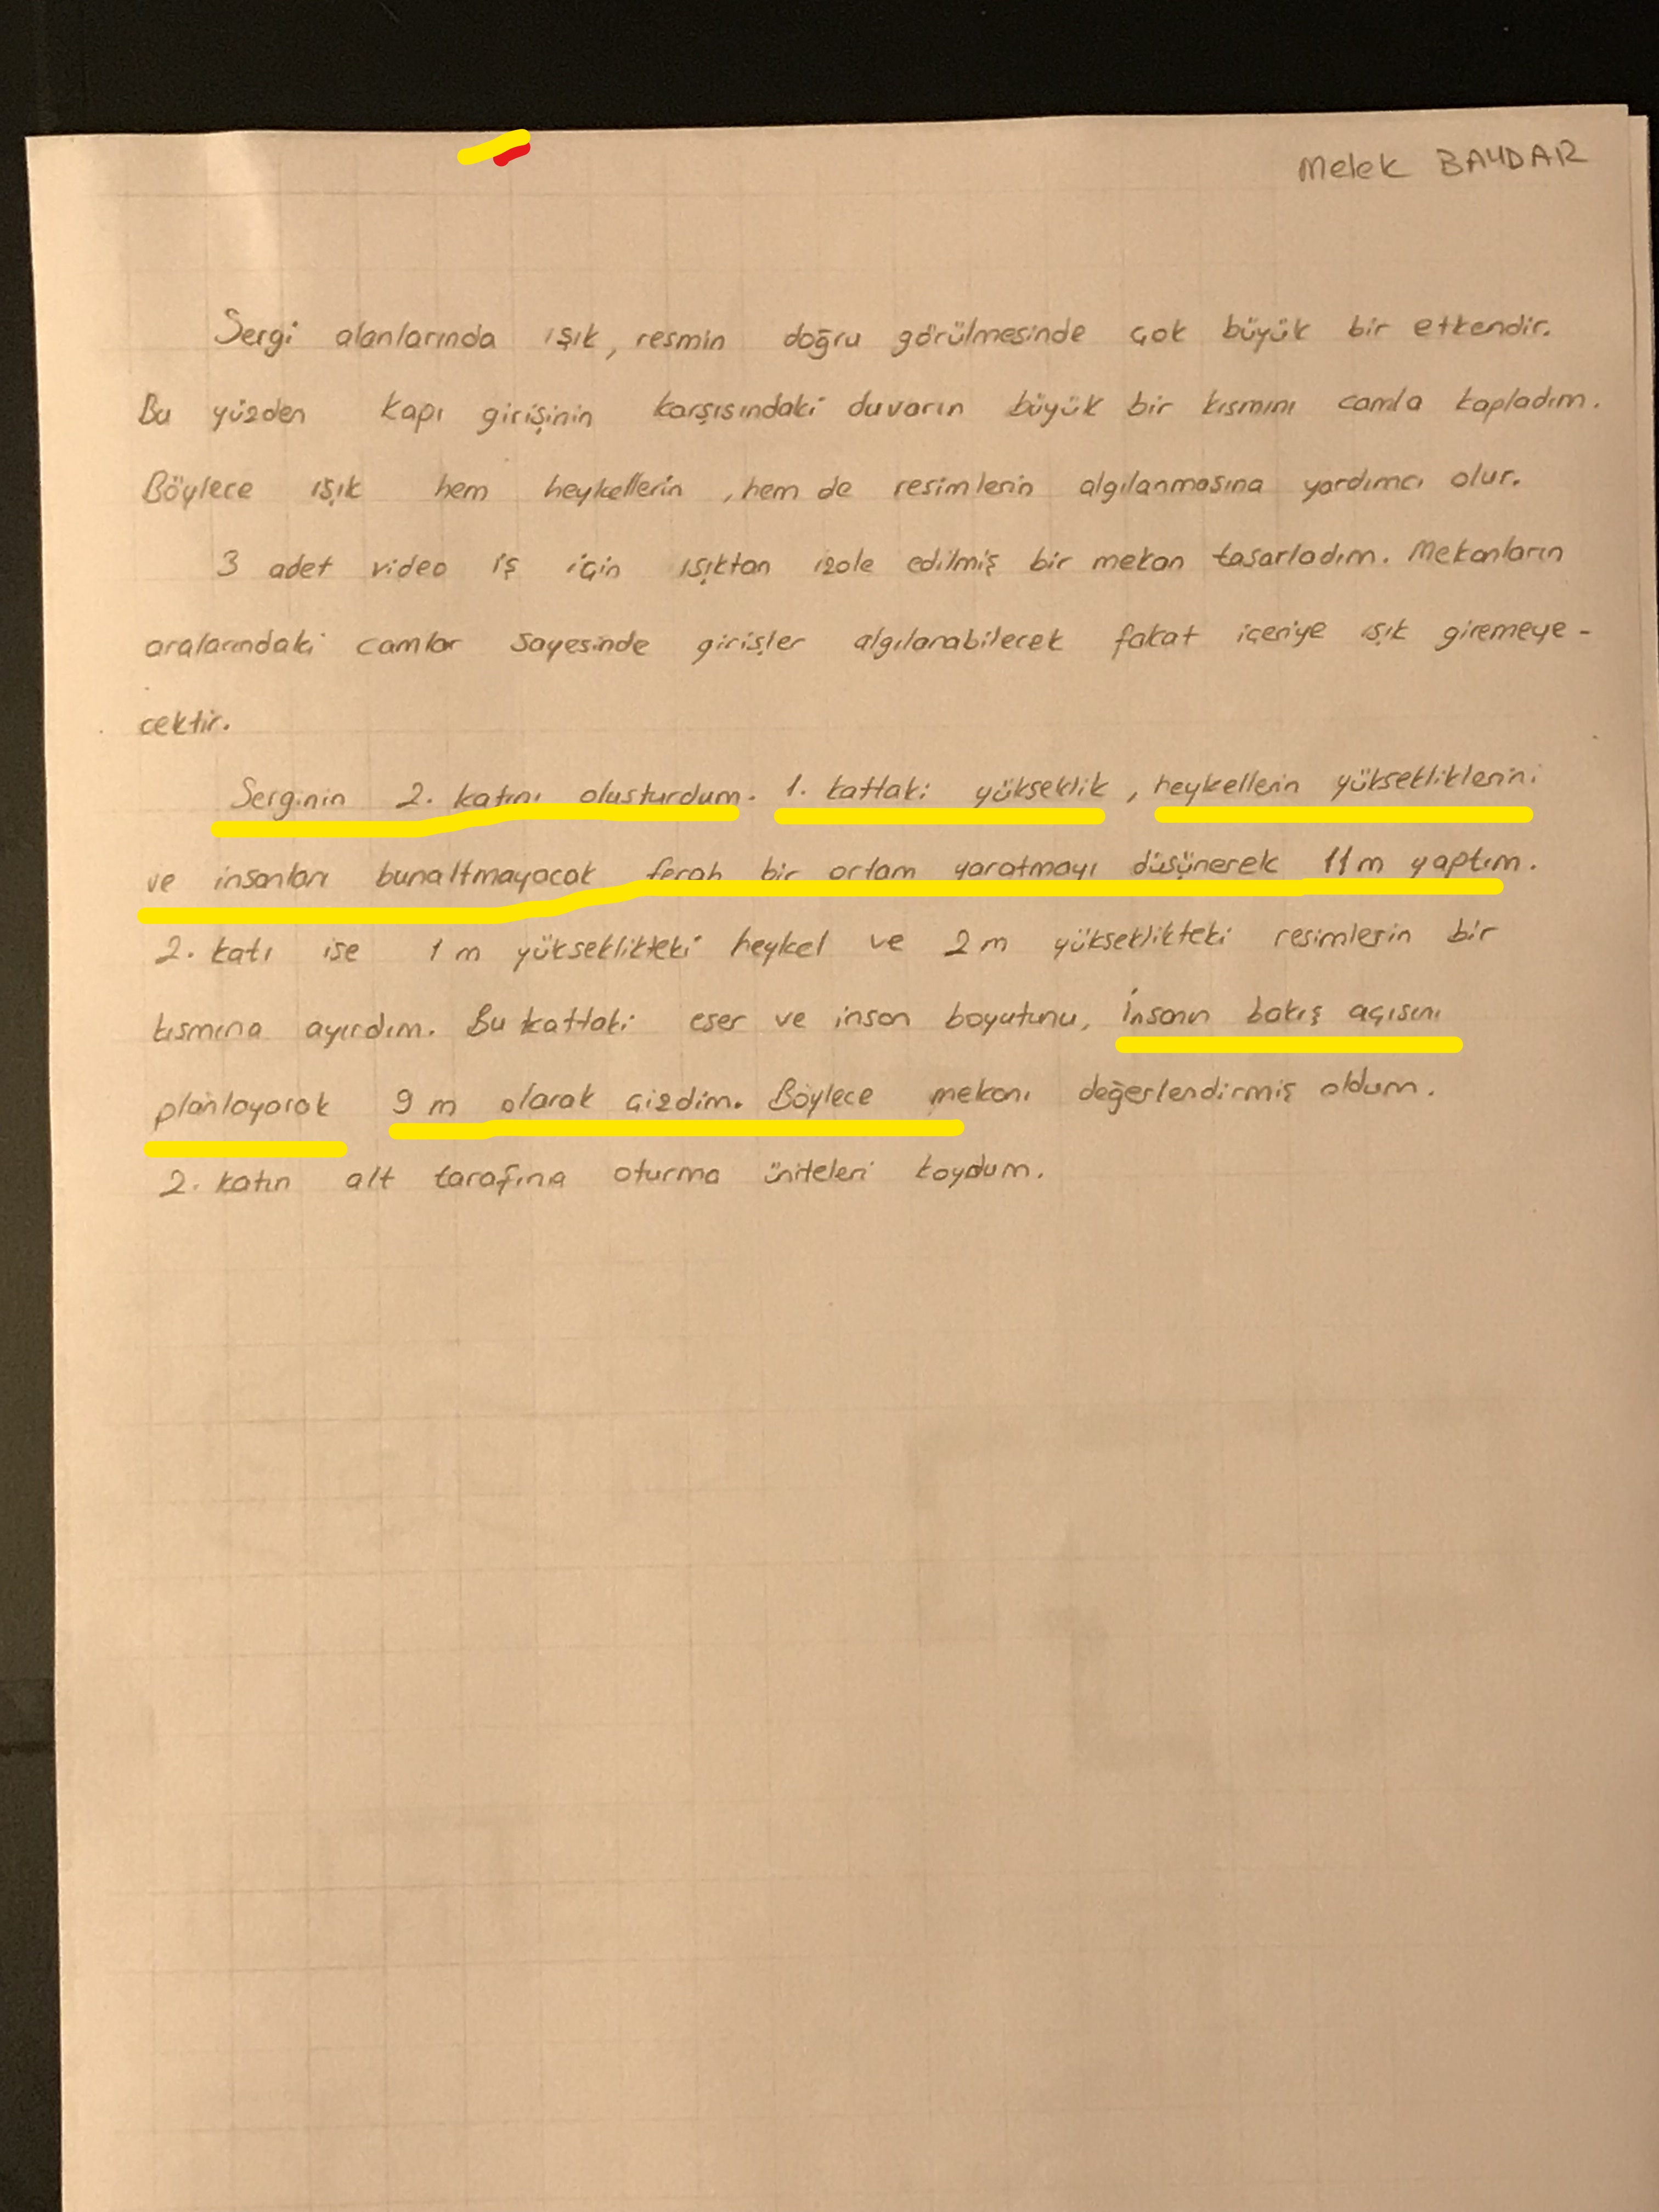 Melek BAYDAR
Sergi alanlarında ışık, resmin doğru görülmesinde çok büyük bir etkendir.
Bu yüzden kapı girişinin karşısındaki duvarın büyük bir kısmını camla kapladım.
Böylece ışık hem heykellerin, hem de resimlerin algılanmasına yardımcı olur.
3 adet video iş için ışıktan izole edilmiş bir mekan tasarladım. Mekanların
aralarındaki camlar sayesinde girişler algılanabilecek fakat içeriye ışık giremeye-
cektir.
Serginin 2. katını oluşturdum. 1. kattaki yükseklik, heykellerin yüksekliklerini
ve insanları bunaltmayacak ferah bir ortam yaratmayı düşünerek 11m yaptım.
2. katı ise 1 m yükseklikteki heykel ve 2 m yükseklikteki resimlerin bir
kısmına ayırdım. Bu kattaki eser ve insan boyutunu, İnsanın bakış açısını
planlayarak 9 m olarak çizdim. Böylece mekanı değerlendirmiş oldum.
2. katın alt tarafına oturma üniteleri koydum.